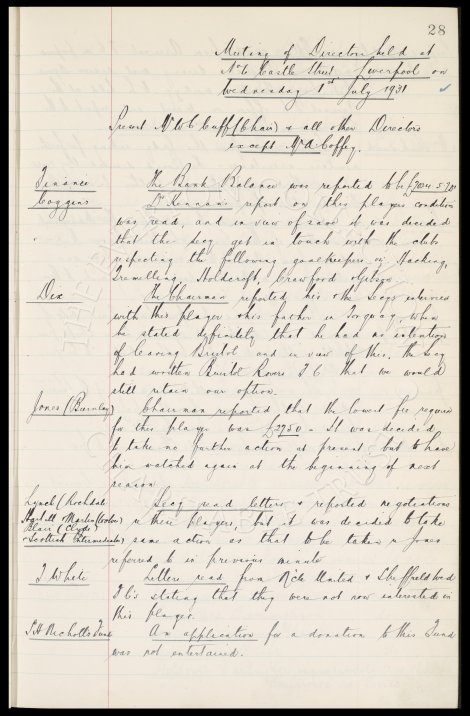 28
Meeting of Directors held at
No 6 Castle Street Liverpool on
Wednesday 1st July 1931
Present Mr W C Cuff (Chair) & all other Directors
except Mr A Coffey.
Finance The Bank Balance was reported to be
Coggins Dr Kennan's report on this players condition
was read, and in view of same it was decided
that the Secy get in touch with the clubs
respecting the following goalkeepers viz Hacking,
Tremelling, Holdcroft, Crawford &
Dix The Chairman reported his & the Secys interview
with this player & his father in Torquay, when
he stated definitely that he had no intention
of leaving Bristol and in view of this, the Secy
had written Bristol Rovers F C that we would
still retain our option.
Jones (Burnley) Chairman reported that the lowest fee required
for this player was £2950 - It was decided
to take no further action at present but to have
him watched again at the beginning of next
season.
Lynch (Rochdale Secy read letters & reported negotiations
& Martin re these players, but it was decided to take
Blair (Clyde)
& Scottish Intermediates) same action as that to be taken re Jones
referred to in previous minute
T White Letters read from Newc United & Sheffield Wed
F Cs stating that they were not now interested in
this player.
T H Nicholls Fund An application for a donation to this Fund
was not entertained.